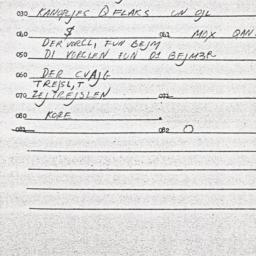 030 KANOPLJES @ FLAKS UN OJL
040 $ 042 MOX QAN
DER VORCL, FUN BEJM
050 DI VORCLEN FUN DI BEJMER
060 DER CVAJG
TREJSL, T
070 ZEJ TREJSLEN 072
080 KORE
081 082 O